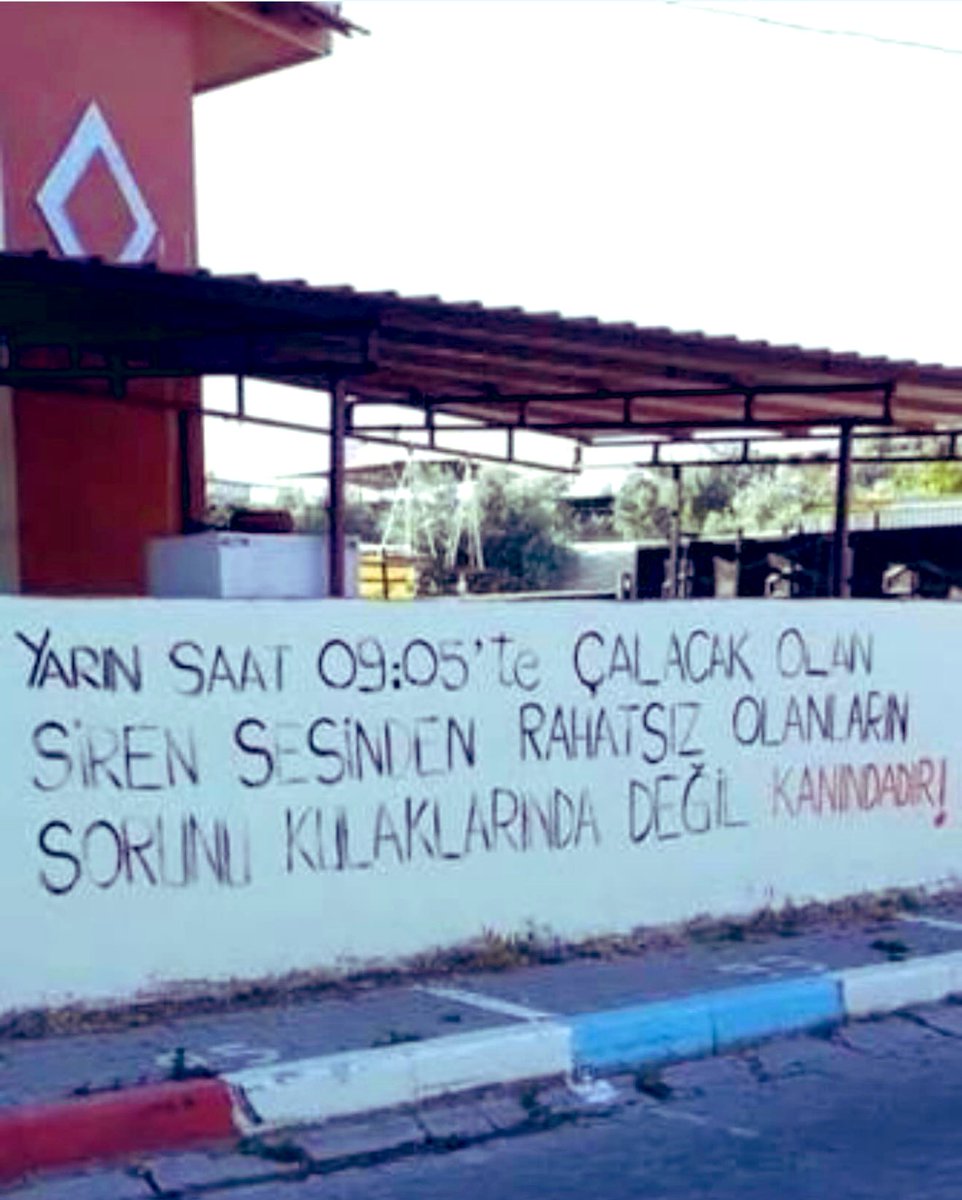 YARIN SAAT 09:05'te ÇALACAK OLAN
SİREN SESİNDEN RAHATSIZ OLANLARIN
SORUNU KULAKLARINDA DEĞİL KANINDADIR!